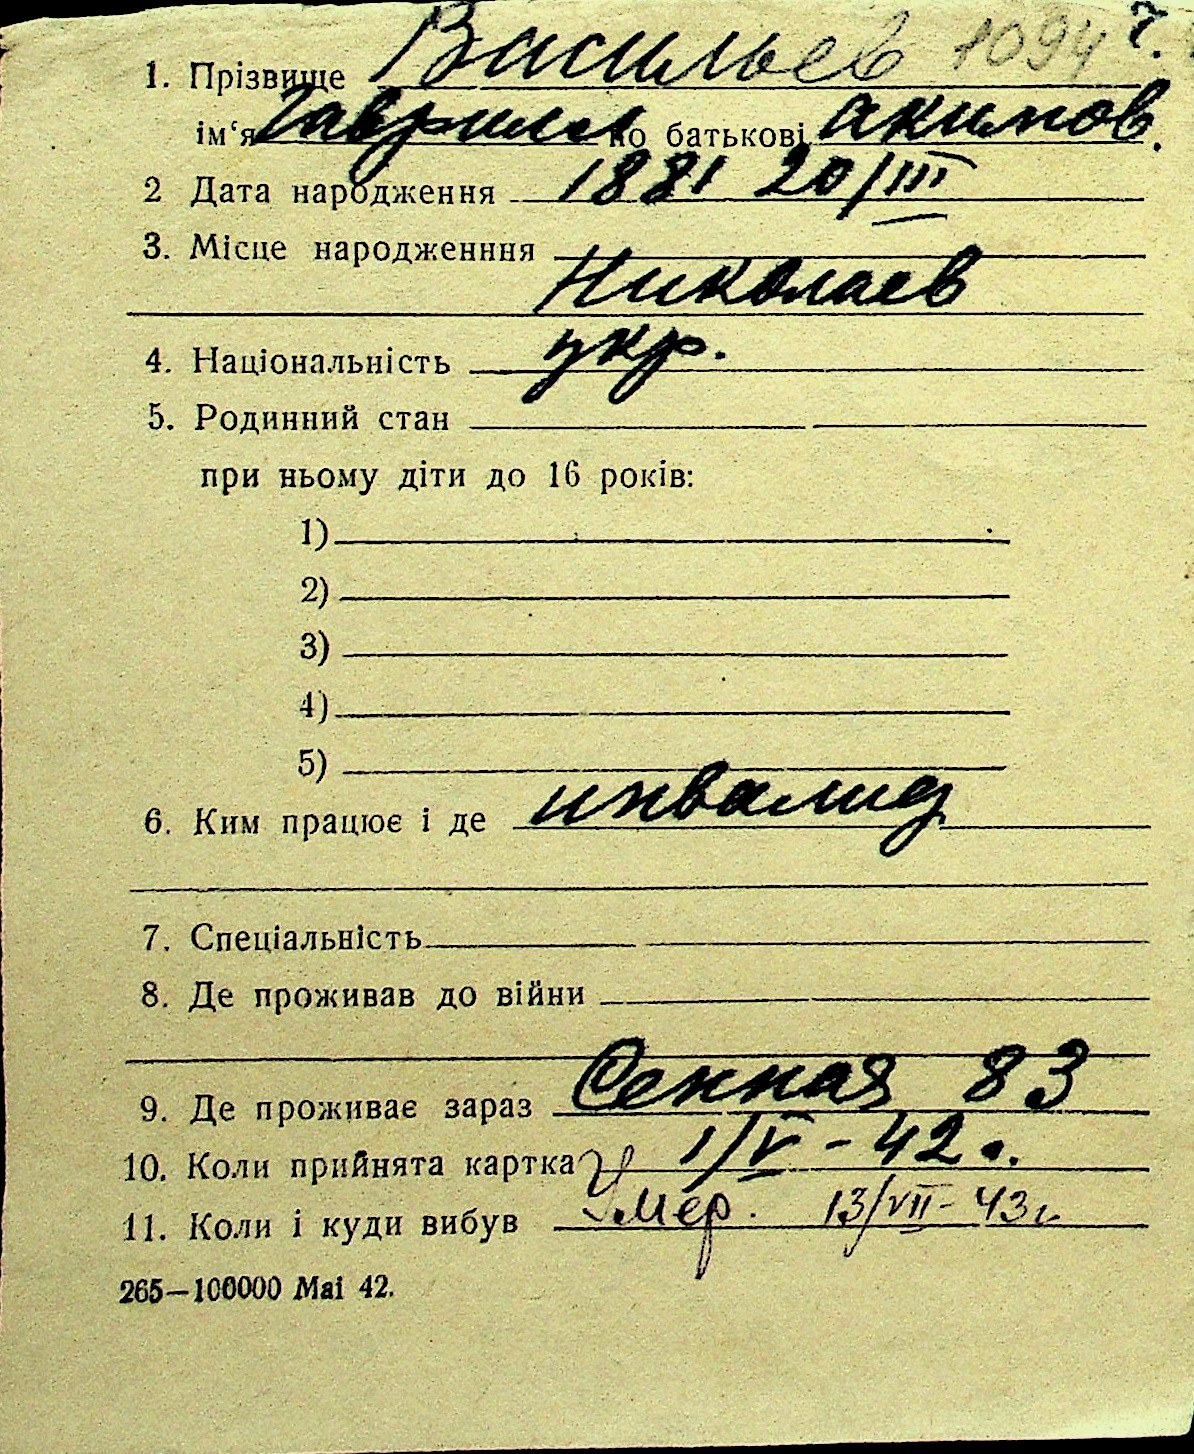 1. Прізвище Васильев 1094 7.
ім‘я Гаврила по батькові Акимов.
2 Дата народження 1881 20/III
3. Місце народженння
Николаев
4. Національність укр.
5. Родинний стан
при ньому діти до 16 років:
1)
2)
3)
4)
5)
6. Ким працює і де инвалид
7. Спеціальність
8. Де проживав до війни
9. Де проживає зараз Сенная 83
10. Коли прийнята картка 1/V - 42 г.
11. Коли і куди вибув Умер. 13/VII - 43 г
265—100000 Mai 42.